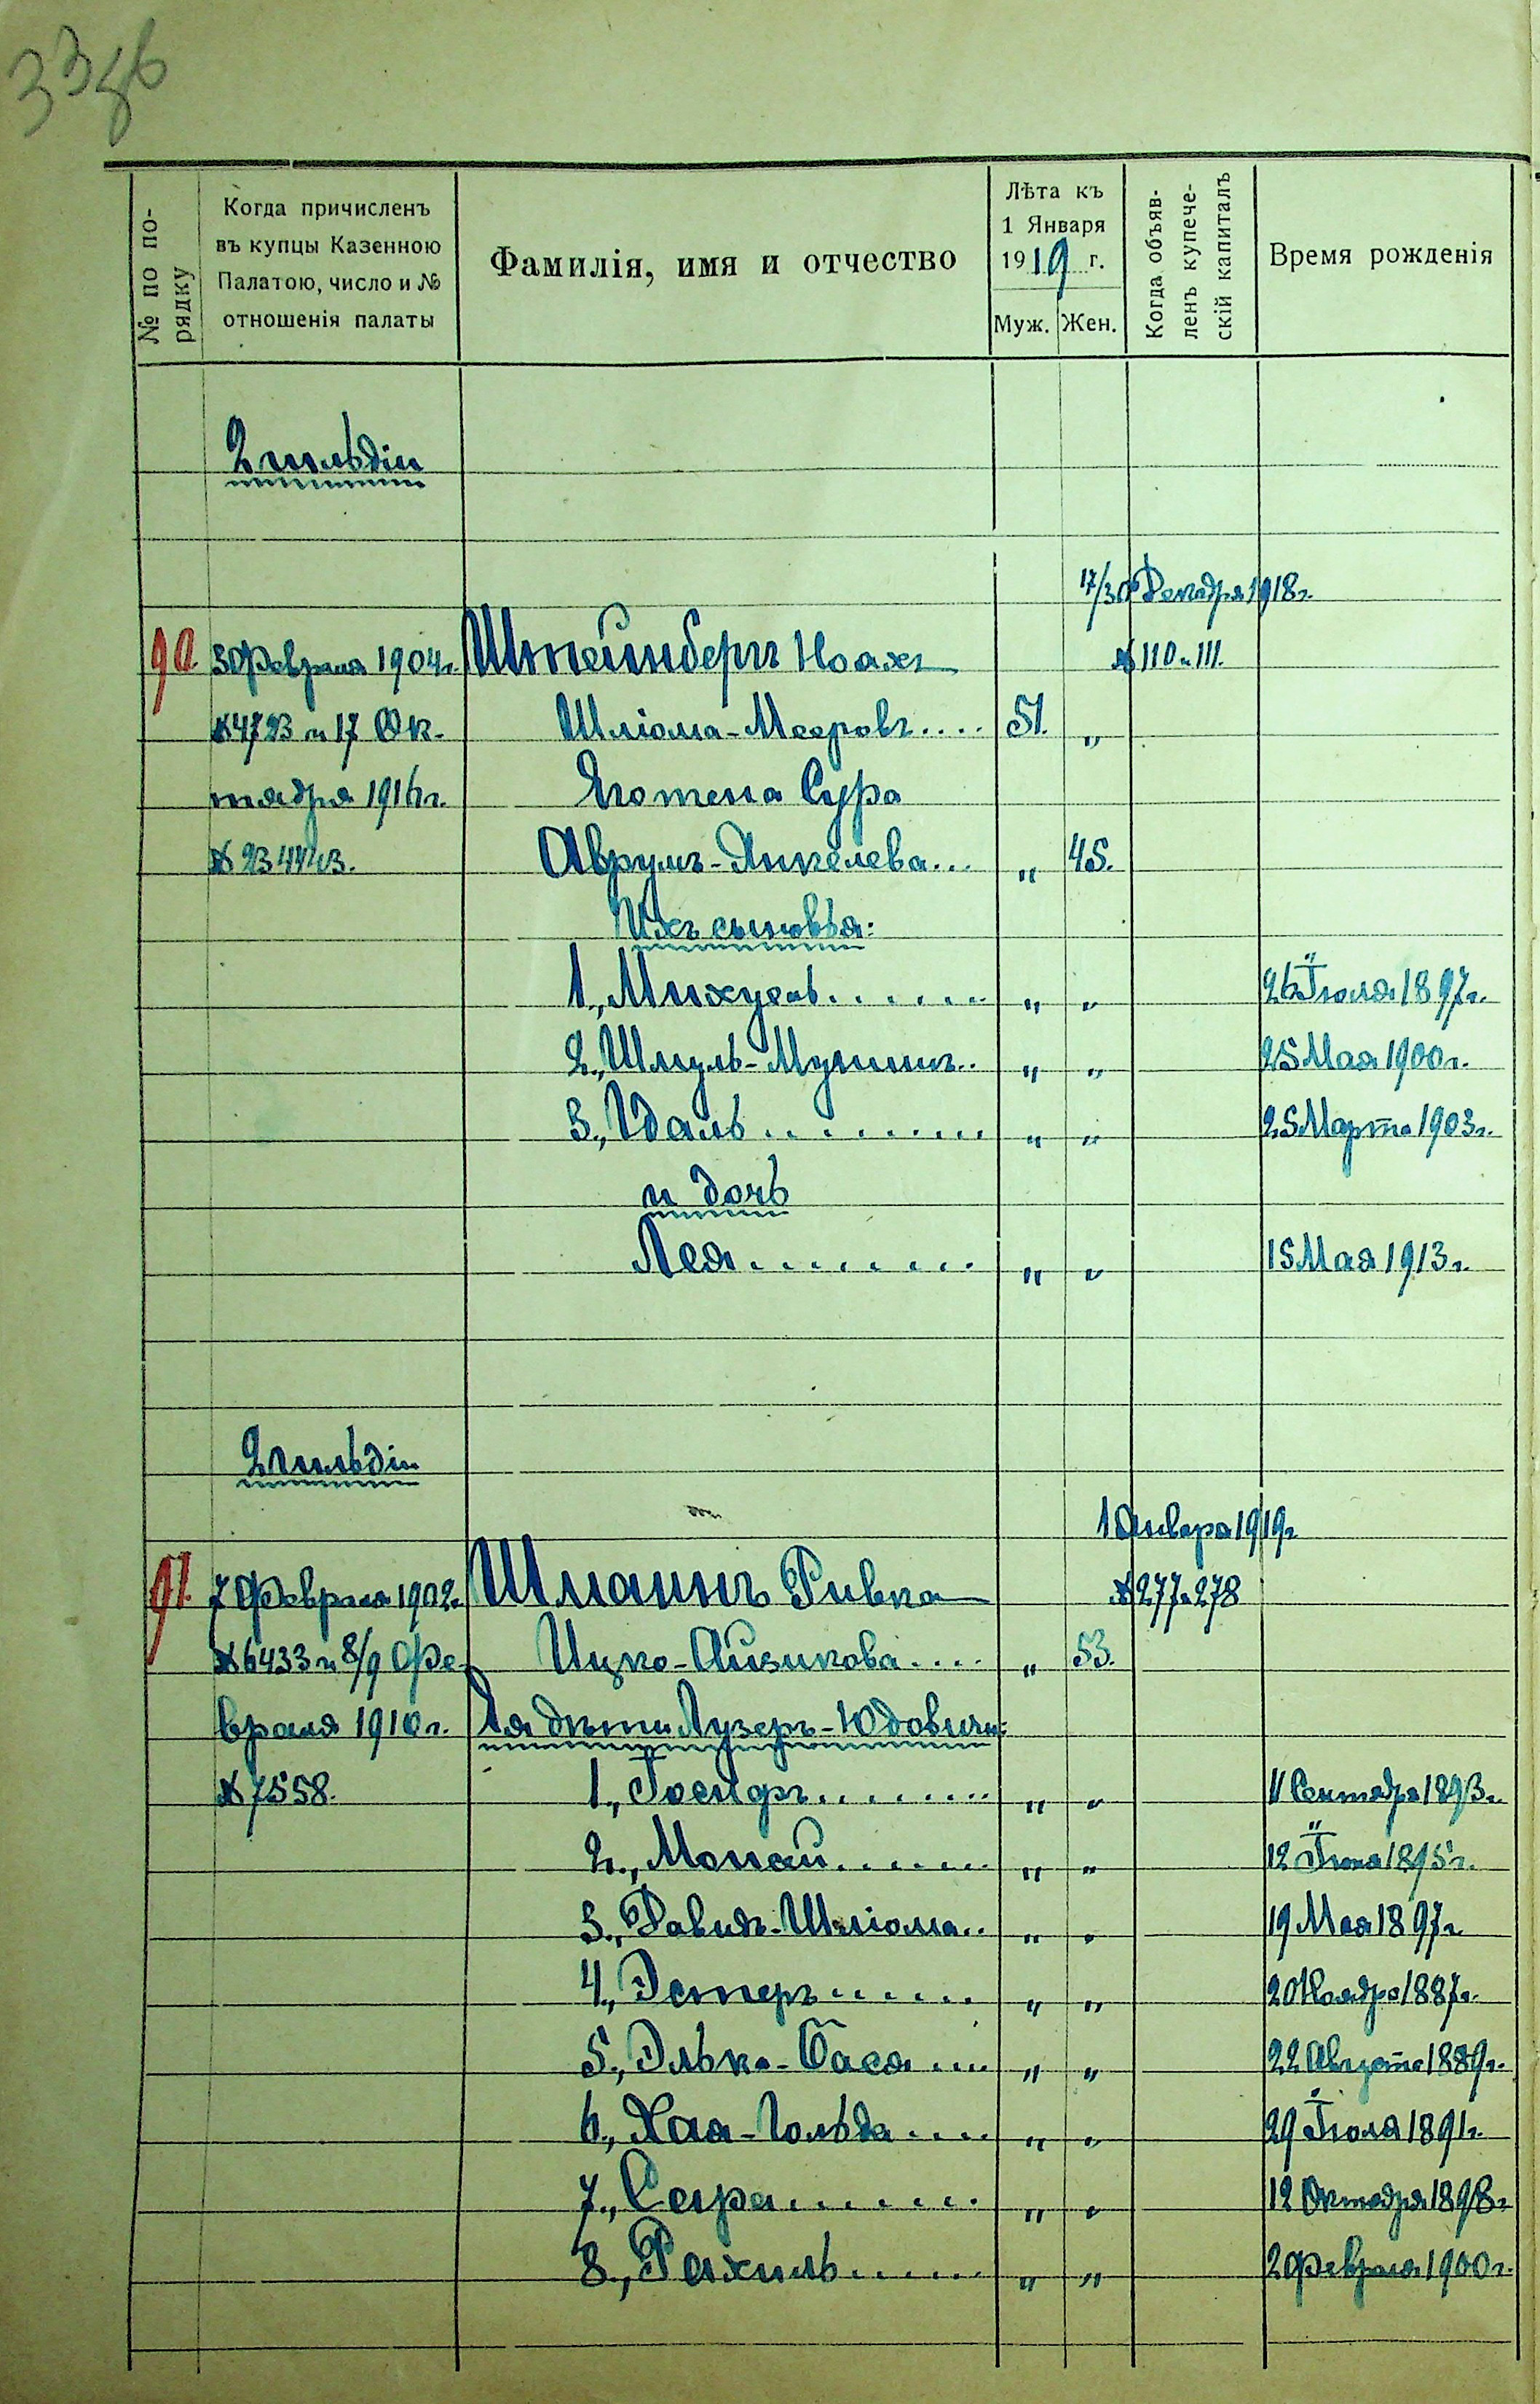 33 об
№ по по-
рядку
Когда причисленъ
въ купцы Казенною
Палатою, число и №
отношенія палаты
Фамилія, имя и отчество
Лѣта къ
1 Января
1919 г.
Муж. Жен.
Когда объяв-
ленъ купече-
скій капиталъ
Время рожденія
2 гильдіи
17/30 Декабря 1918 г.
90. 30 Февраля 1904 г. Штейнбергъ Ноахъ № 110 и 111.
№ 4723 и 17 Ок- Шліома-Мееровъ.... 51. „
тября 1916 г. Его жена Сура
№ 23443. Аврумъ-Янкелева... „ 45.
Ихъ сыновья:
1., Михуель....... „ „ 26 Іюля 1897 г.
2., Шмуль-Мунишъ.. „ „ 25 Мая 1900 г.
3., Удаль.......... „ „ 25 Марта 1903 г.
и дочь
Лея......... „ „ 15 Мая 1913 г.
2 гильдіи
1 Января 1919 г.
91. 7 Февраля 1902 г. Шмаинъ Ривка № 277 и 278
№ 6433 и 8/9 Фе- Ицко-Айзикова.... „ 53.
враля 1910 г. Ея дѣти Лузеръ-Юдовичи:
№ 7558. 1., Іосифъ........ „ „ 11 Сентября 1893 г.
2., Мошей....... „ „ 12 Іюня 1895 г.
3., Давидъ-Шліома.. „ „ 19 Мая 1897 г.
4., Эстеръ...... „ „ 20 Ноября 1887 г.
5., Элька-Бася.... „ „ 22 Августа 1889 г.
6., Хая-Гольда.... „ „ 29 Іюля 1891 г.
7., Сара....... „ „ 12 Октября 1898 г.
8., Рахиль...... „ „ 2 Февраля 1900 г.